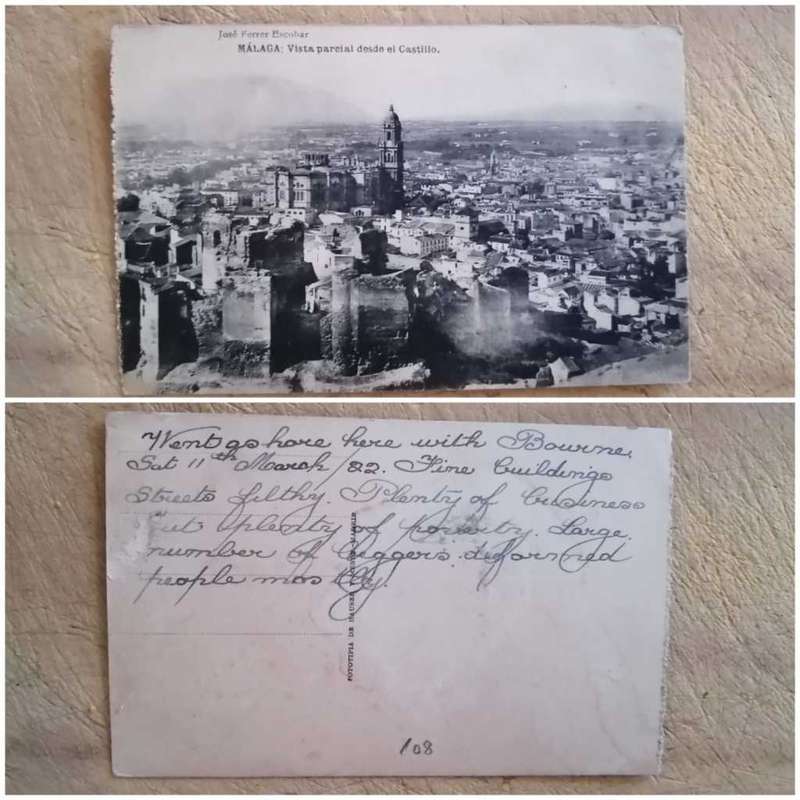 José Ferrer Escobar
MÁLAGA: Vista parcial desde el Castillo.
Went ashore here with Bourne,
Sat 11th March /22. Fine buildings
Streets filthy. Plenty of business
but plenty of poverty. Large
number of beggers. deformed
people mostly.
FOTOTIPIA DE HAUSER Y MENET.-MADRID
/08